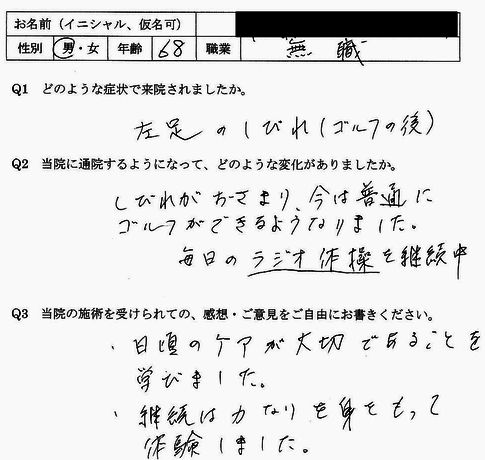 お名前（イニシャル、仮名可）
性別 男・女 年齢 68 職業 無職
Q1 どのような症状で来院されましたか。
左足のしびれ（ゴルフの後）
Q2 当院に通院するようになって、どのような変化がありましたか。
しびれがおさまり、今は普通に
ゴルフができるようなりました。
毎日のラジオ体操を継続中
Q3 当院の施術を受けられての、感想・ご意見をご自由にお書きください。
・日頃のケアが大切であることを
学びました。
・継続は力なりを身をもって
体験しました。